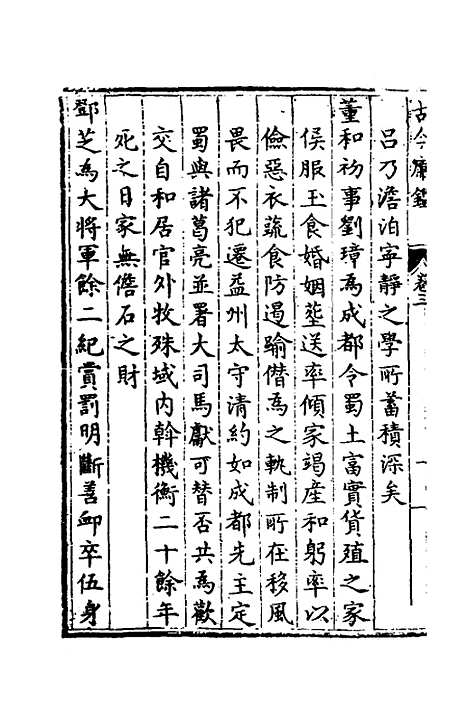 古今廉鑑 卷三
呂乃澹泊寧靜之學所蓄積深矣
董和初事劉璋為成都令蜀土富實貨殖之家
侯服玉食婚姻塟送率傾家竭產和躬率以
儉惡衣蔬食防遏踰僭為之軌制所在移風
畏而不犯遷益州太守清約如成都先主定
蜀與諸葛亮並署大司馬獻可替否共為歡
交自和居官外牧殊域內幹機衡二十餘年
死之日家無儋石之財
鄧芝為大將軍餘二紀賞罰明斷善卹卒伍身